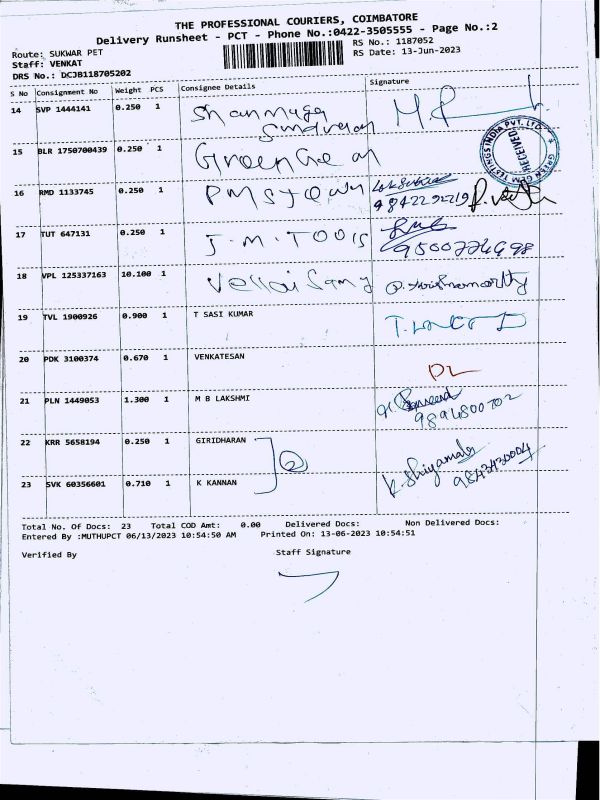 THE PROFESSIONAL COURIERS, COIMBATORE
Delivery Runsheet - PCT - Phone No.:0422-3505555 - Page No.:2
Route: SUKWAR PET
RS No.: 1187052
Staff: VENKAT
RS Date: 13-Jun-2023
DRS No.: DCJB118705202
S No Consignment No Weight PCS Consignee Details Signature
14 SVP 1444141 0.250 1 Shanmuga
Sundaram
15 BLR 1750700439 0.250 1 Green Gem
GREEN GEM TESTINGS INDIA PVT. LTD.
RECEIVED
16 RMD 1133745 0.250 1 PMS
9842292219
17 TUT 647131 0.250 1 J.M.Tools
9500774998
18 VPL 125337163 10.100 1 Vellai Samy
19 TVL 1900926 0.900 1 T SASI KUMAR
20 PDK 3100374 0.670 1 VENKATESAN
21 PLN 1449053 1.300 1 M B LAKSHMI
9894800702
22 KRR 5658194 0.250 1 GIRIDHARAN
2
K. Shiyamala
9843430004
23 SVK 60356601 0.710 1 K KANNAN
Total No. Of Docs: 23 Total COD Amt: 0.00 Delivered Docs: Non Delivered Docs:
Entered By :MUTHUPCT 06/13/2023 10:54:50 AM Printed On: 13-06-2023 10:54:51
Verified By Staff Signature